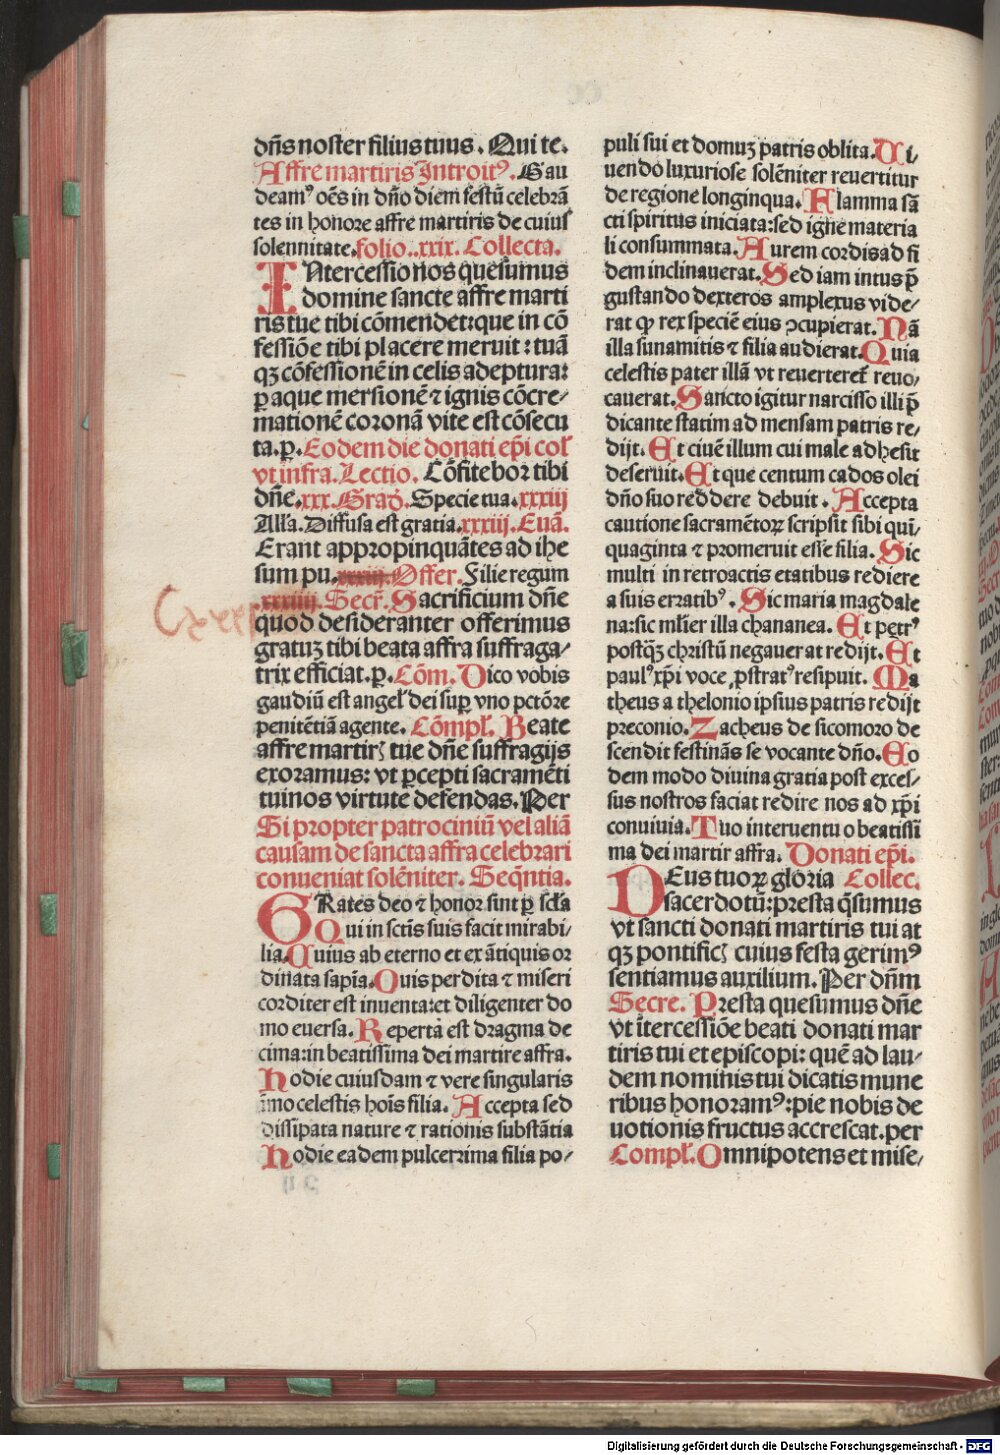 dn̄s noster filius tuus . Qui te.
Affre martiris Introitꝰ. Gau
deamꝰ oēs in dn̄o diem festū celebrā
tes in honore affre martiris de cuius
solennitate.folio..xxix. Collecta.
INtercessio nos quesumus
domine sancte affre marti
ris tue tibi cōmendet:que in cō
fessiōe tibi placere meruit : tuā
qꝫ cōfessionē in celis adeptura:
ꝑ aque mersionē ⁊ ignis cōcre⸗
mationē coronā vite est cōsecu
ta.ꝑ. Eodem die donati ep̄i col
vt infra. Lectio. Cōfitebor tibi
dn̄e.xxx. Grad. Specie tua.xxxiij
Alla. Diffusa est gratia.xxxiij. Euā.
Erant appropinquātes ad ihe
sum pu.xxxiij. Offer. Filie regum
.xxxiiij. Secr̄. Sacrificium dn̄e
Cxxx
quod desideranter offerimus
gratuꝫ tibi beata affra suffraga⸗
trix efficiat.ꝑ. Cōm. Dico vobis
gaudiū est angel' dei suꝑ vno pctōre
penitētiā agente. Cōmpl'. Beate
affre martirꝭ tue dn̄e suffragijs
exoramus: vt ꝑcepti sacramēti
tui nos virtute defendas. Per
Si propter patrociniū vel aliā
causam de sancta affra celebrari
conueniat solēniter. Seqn̄tia.
GRates deo ⁊ honor sint ꝑ scl̄a
Qui in sctīs suis facit mirabi⸗
lia. Cuius ab eterno et ex ātiquis or
dinata sapīa. Quis perdita ⁊ miseri
corditer est inuenta:et diligenter do
mo euersa. Repertā est dragma de
cima:in beatissima dei martire affra.
Hodie cuiusdam ⁊ vere singularis
īmo celestis hoīs filia. Accepta sed
dissipata nature ⁊ rationis substātia
Hodie eadem pulcerrima filia po⸗
puli sui et domuꝫ patris oblita. Ui⸗
uendo luxuriose solēniter reuertitur
de regione longinqua. Flamma sā
cti spiritus iniciata:sed igne materia
li consummata. Aurem cordis ad fi
dem inclinauerat. Sed iam intus p̄
gustando dexteros amplexus vide⸗
rat ꝙ rex speciē eius ↄcupierat. Nā
illa sunamitis ⁊ filia audierat. Quia
celestis pater illā vt reuerteret̄ reuo⸗
cauerat. Sancto igitur narcisso illi p̄
dicante statim ad mensam patris re⸗
dijt. Et ciuē illum cui male adhesit
deseruit. Et que centum cados olei
dn̄o suo reddere debuit . Accepta
cautione sacramētoꝝ scripsit sibi qui̅⸗
quaginta ⁊ promeruit esse filia. Sic
multi in retroactis etatibus rediere
a suis erratibꝰ . Sic maria magdale
na:sic ml̄ier illa chananea. Et petrꝰ
postqꝫ christū negauerat redijt. Et
paulꝰ xp̄i voce ꝓstratꝰ resipuit. Ma
theus a thelonio ipsius patris redijt
preconio. Zacheus de sicomoro de
scendit festinās se vocante dn̄o. Eo
dem modo diuina gratia post exces⸗
sus nostros faciat redire nos ad xp̄i
conuiuia. Tuo interuentu o beatissi
ma dei martir affra. Donati ep̄i.
DEus tuoꝝ gloria Collec.
sacerdotū:presta q̄sumus
vt sancti donati martiris tui at
qꝫ pontificꝭ cuius festa gerimꝰ
sentiamus auxilium. Per dn̄m
Secre. Presta quesumus dn̄e
vt ītercessiōe beati donati mar
tiris tui et episcopi: quē ad lau⸗
dem nominis tui dicatis mune
ribus honoramꝰ:pie nobis de
uotionis fructus accrescat.per
Compl'. Omnipotens et mise⸗
Digitalisierung gefördert durch die Deutsche Forschungsgemeinschaft - DFG